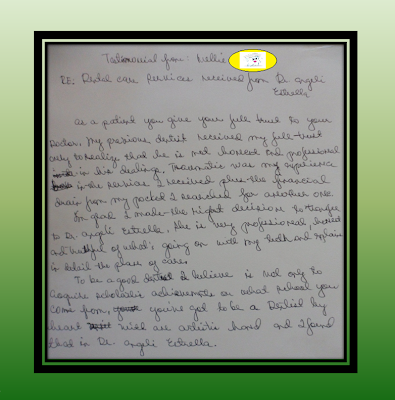 Testimonial from: Nellie
RE: Dental care services received from Dr. Angeli
Estrella
As a patient you give your full trust to your
Doctor. My previous dentist received my full-trust
only to realize that he is not honest and professional
in his dealings. Traumatic was my experience
in the services I received plus the financial
drain from my pocket I searched for another one.
I made the right decision to transfer
to Dr. Angeli Estrella. She is very professional, honest
and truthful of what's going on with my teeth and explains
in detail the plan of care.
To be a good dentist I believe is not only to
acquire scholastic achievements or what school you
come from, you've got to be a Dentist by
heart with an artistic hand and I found
that in Dr. Angeli Estrella.